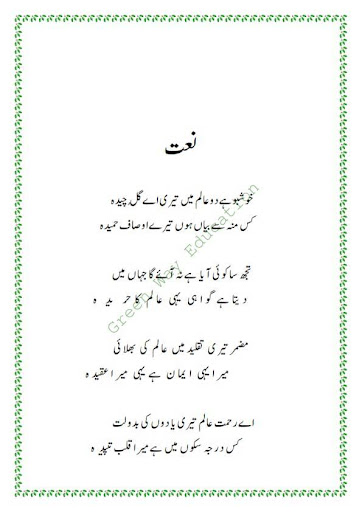 نعت
خوشبو ہے دو عالم میں تیری اے گل چیدہ
کس منہ سے بیاں ہوں تیرے اوصاف حمیدہ
تجھ سا کوئی آیا ہے نہ آئے گا جہاں میں
دیتا ہے گواہی یہی عالم کا جریدہ
مضمر تیری تقلید میں عالم کی بھلائی
میرا یہی ایمان ہے یہی میرا عقیدہ
اے رحمت عالم تیری یادوں کی بدولت
کس درجہ سکوں میں ہے میرا قلب تپیدہ
Green Way Education